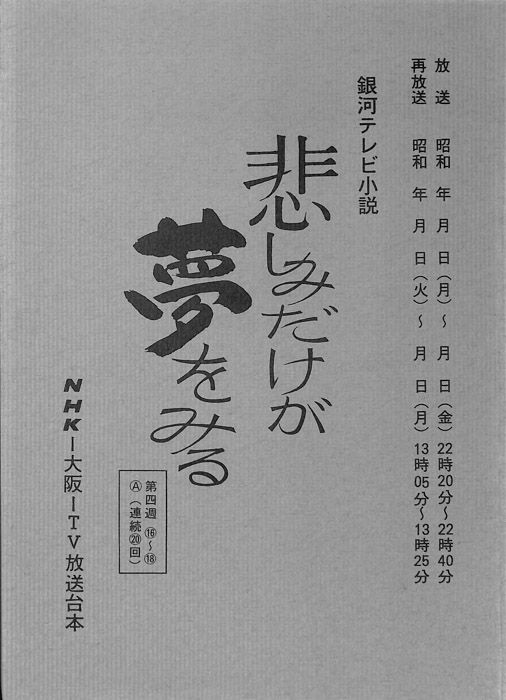 放送　昭和　年　月　日（月）〜　月　日（金）22時20分〜22時40分
再放送　昭和　年　月　日（火）〜　月　日（月）13時05分〜13時25分
銀河テレビ小説
悲しみだけが
夢をみる
第四週　⑯〜⑱
Ⓐ（連続⑳回）
NHK―大阪―TV放送台本